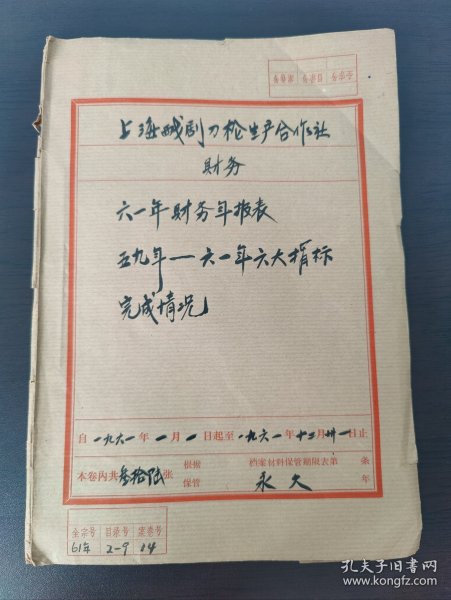 上海戏剧刀枪生产合作社
财务
六一年财务年报表
五九年—六一年六大指标
完成情况
自一九六一年一月一日起至一九六一年十二月卅一日止
本卷内共叁拾陆张 根据 保管 档案材料保管期限表第 条 永久 年
全宗号 目录号 案卷号
61年 2-9 14
孔夫子旧书网
www.kongfz.com